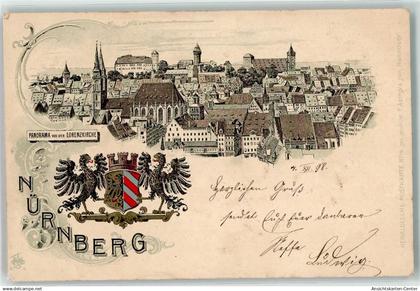 PANORAMA VON DER LORENZKIRCHE
NÜRNBERG
4. XII. 98.
Herzlichen Gruß
sendet Euch Euer dankbarer
Neffe
Ludwig.
Ansichtskarten-Center